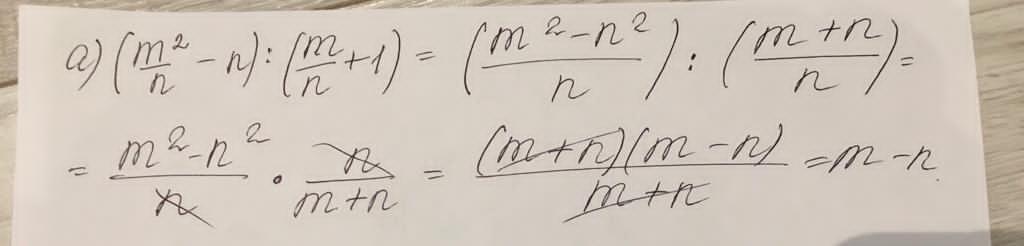 а) (m²/n - n) : (m/n + 1) = ((m² - n²)/n) : ((m + n)/n) =
= (m² - n²)/n · n/(m + n) = (m + n)(m - n)/(m + n) = m - n.